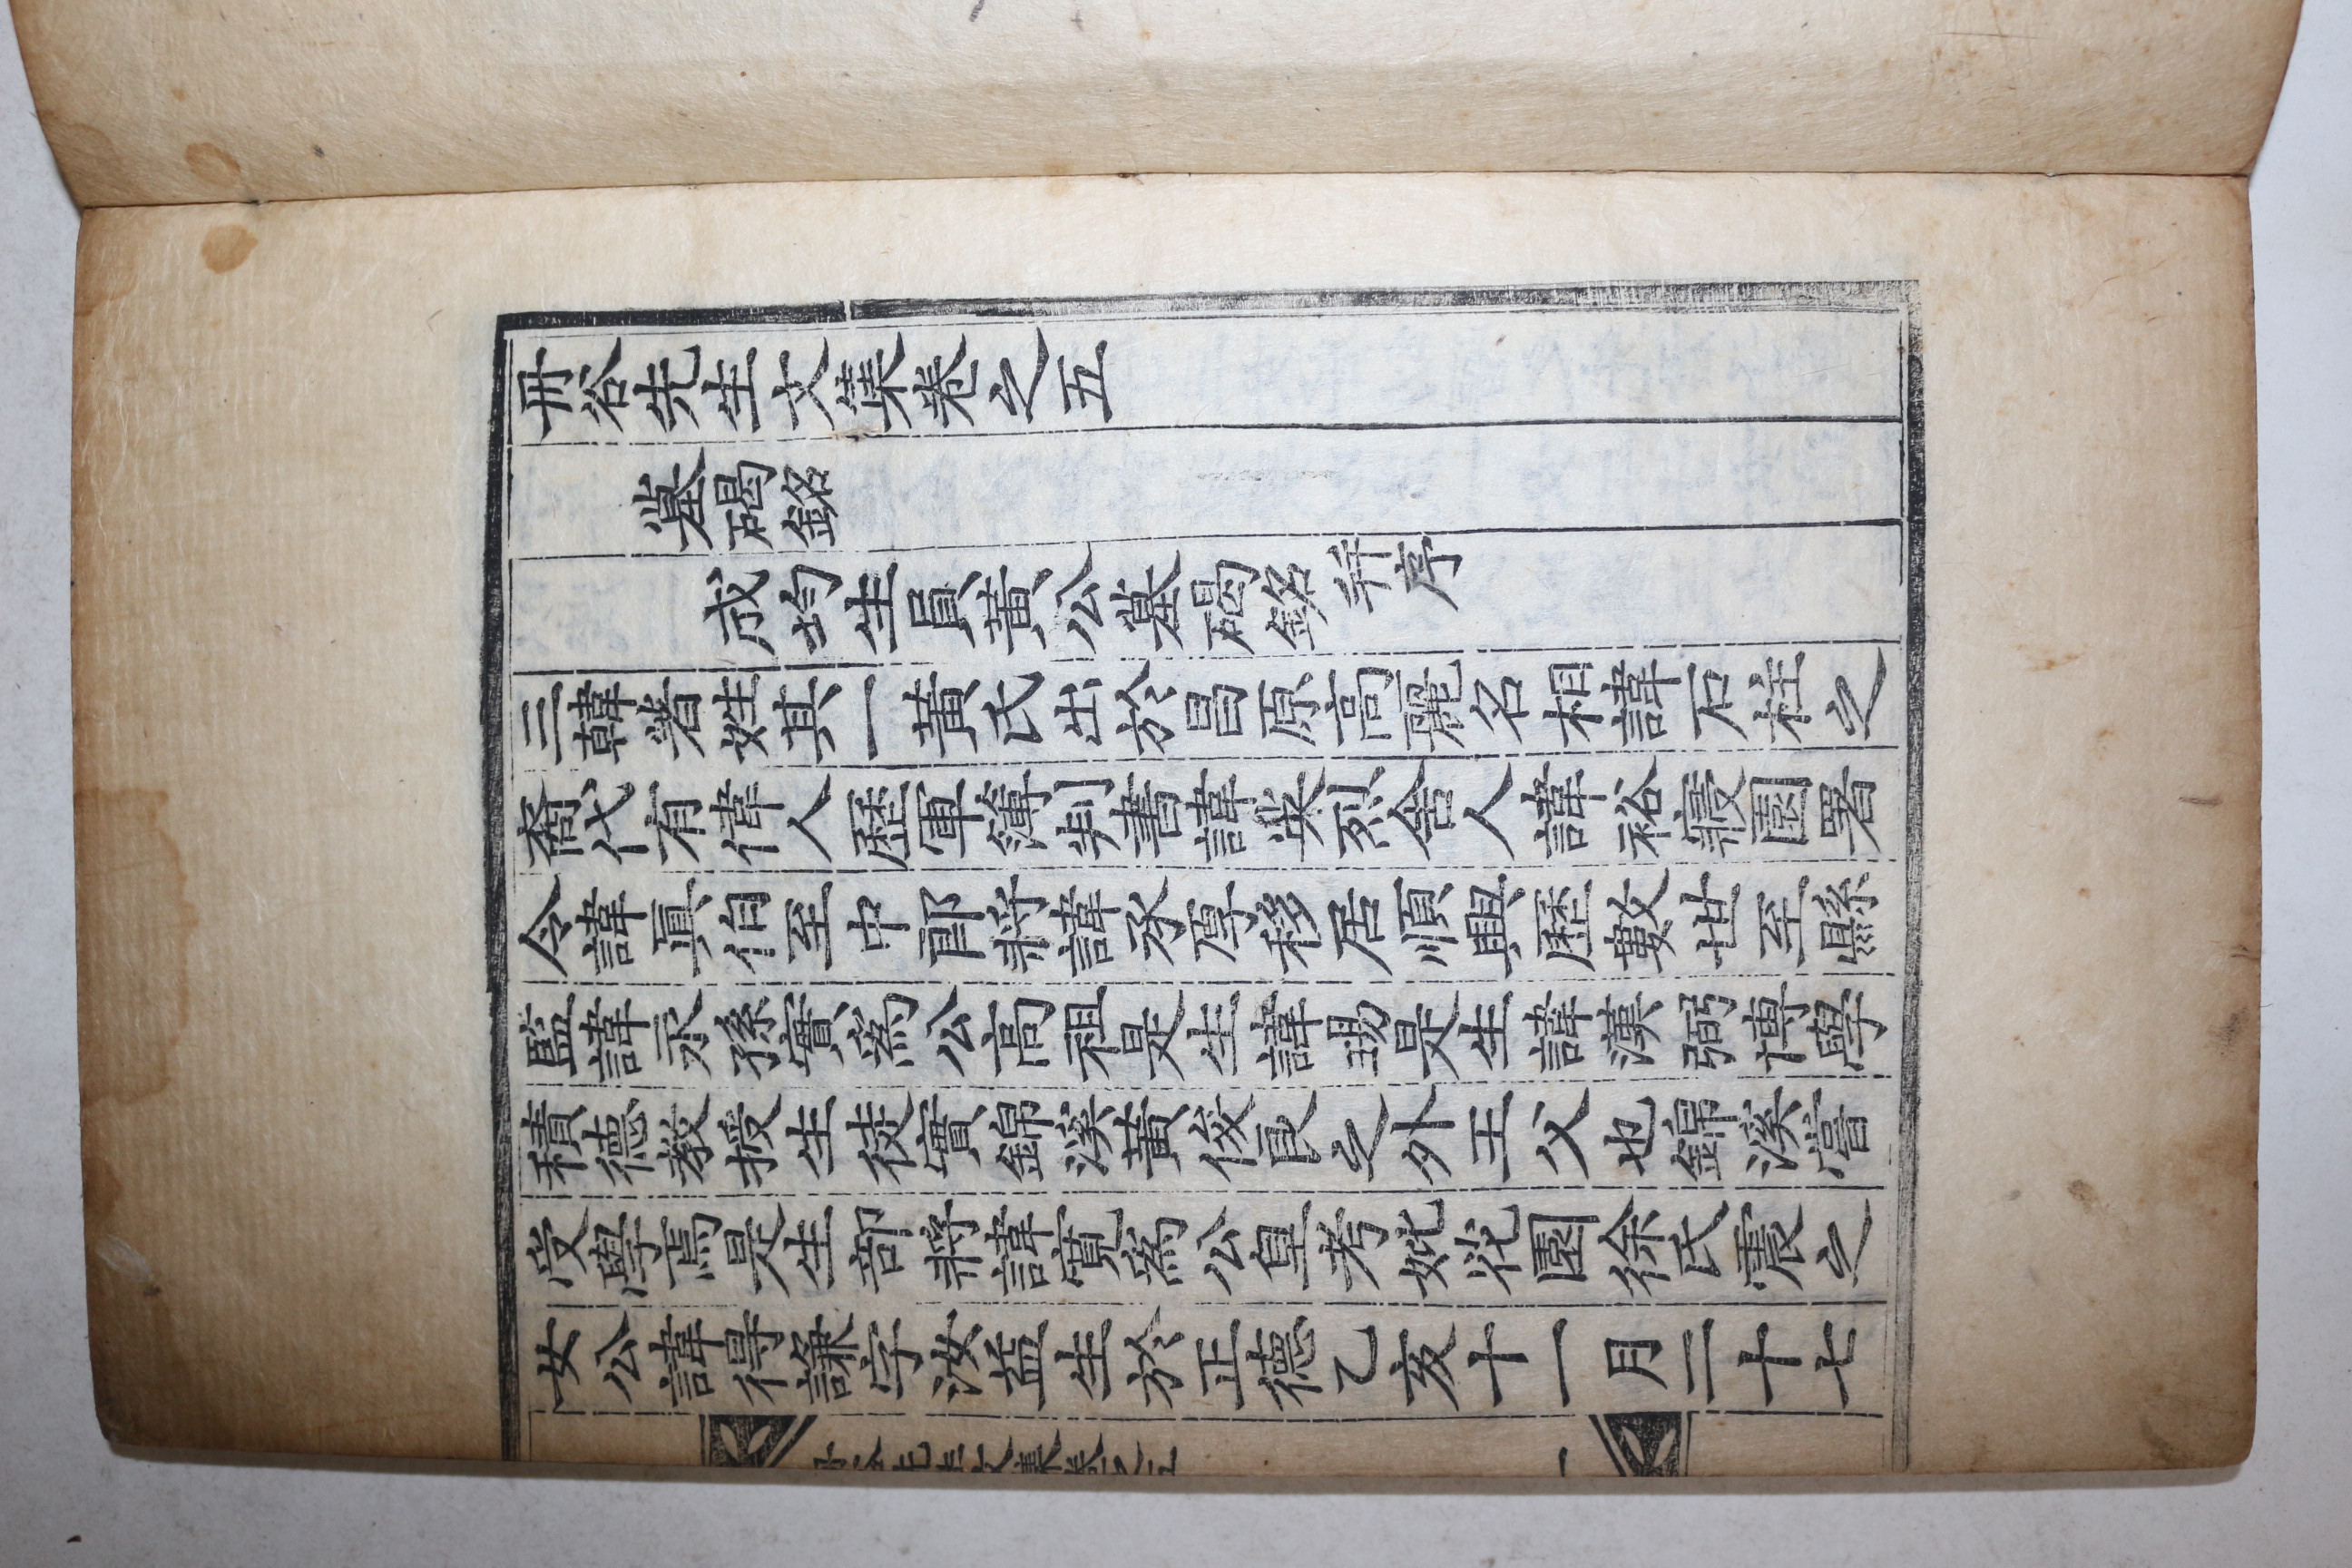 丹谷先生文集卷之五
墓碣銘
成均生員黃公墓碣銘 幷序
三韓著姓其一黃氏出於昌原高麗名相諱石柱之
裔代有偉人歷軍簿判書諱然烈舍人諱裕寢園署
令諱眞伯至中郞將諱承厚移居順興歷數世至縣
監諱永孫實爲公高祖是生諱瑒是生諱漢弼博學
積德敎授生徒實錦溪黃俊良之外王父也錦溪嘗
受學焉是生部將諱寬爲公皇考妣花園徐氏震之
女公諱得謙字汝益生於正德乙亥十一月二十七
丹谷先生文集卷之五 一